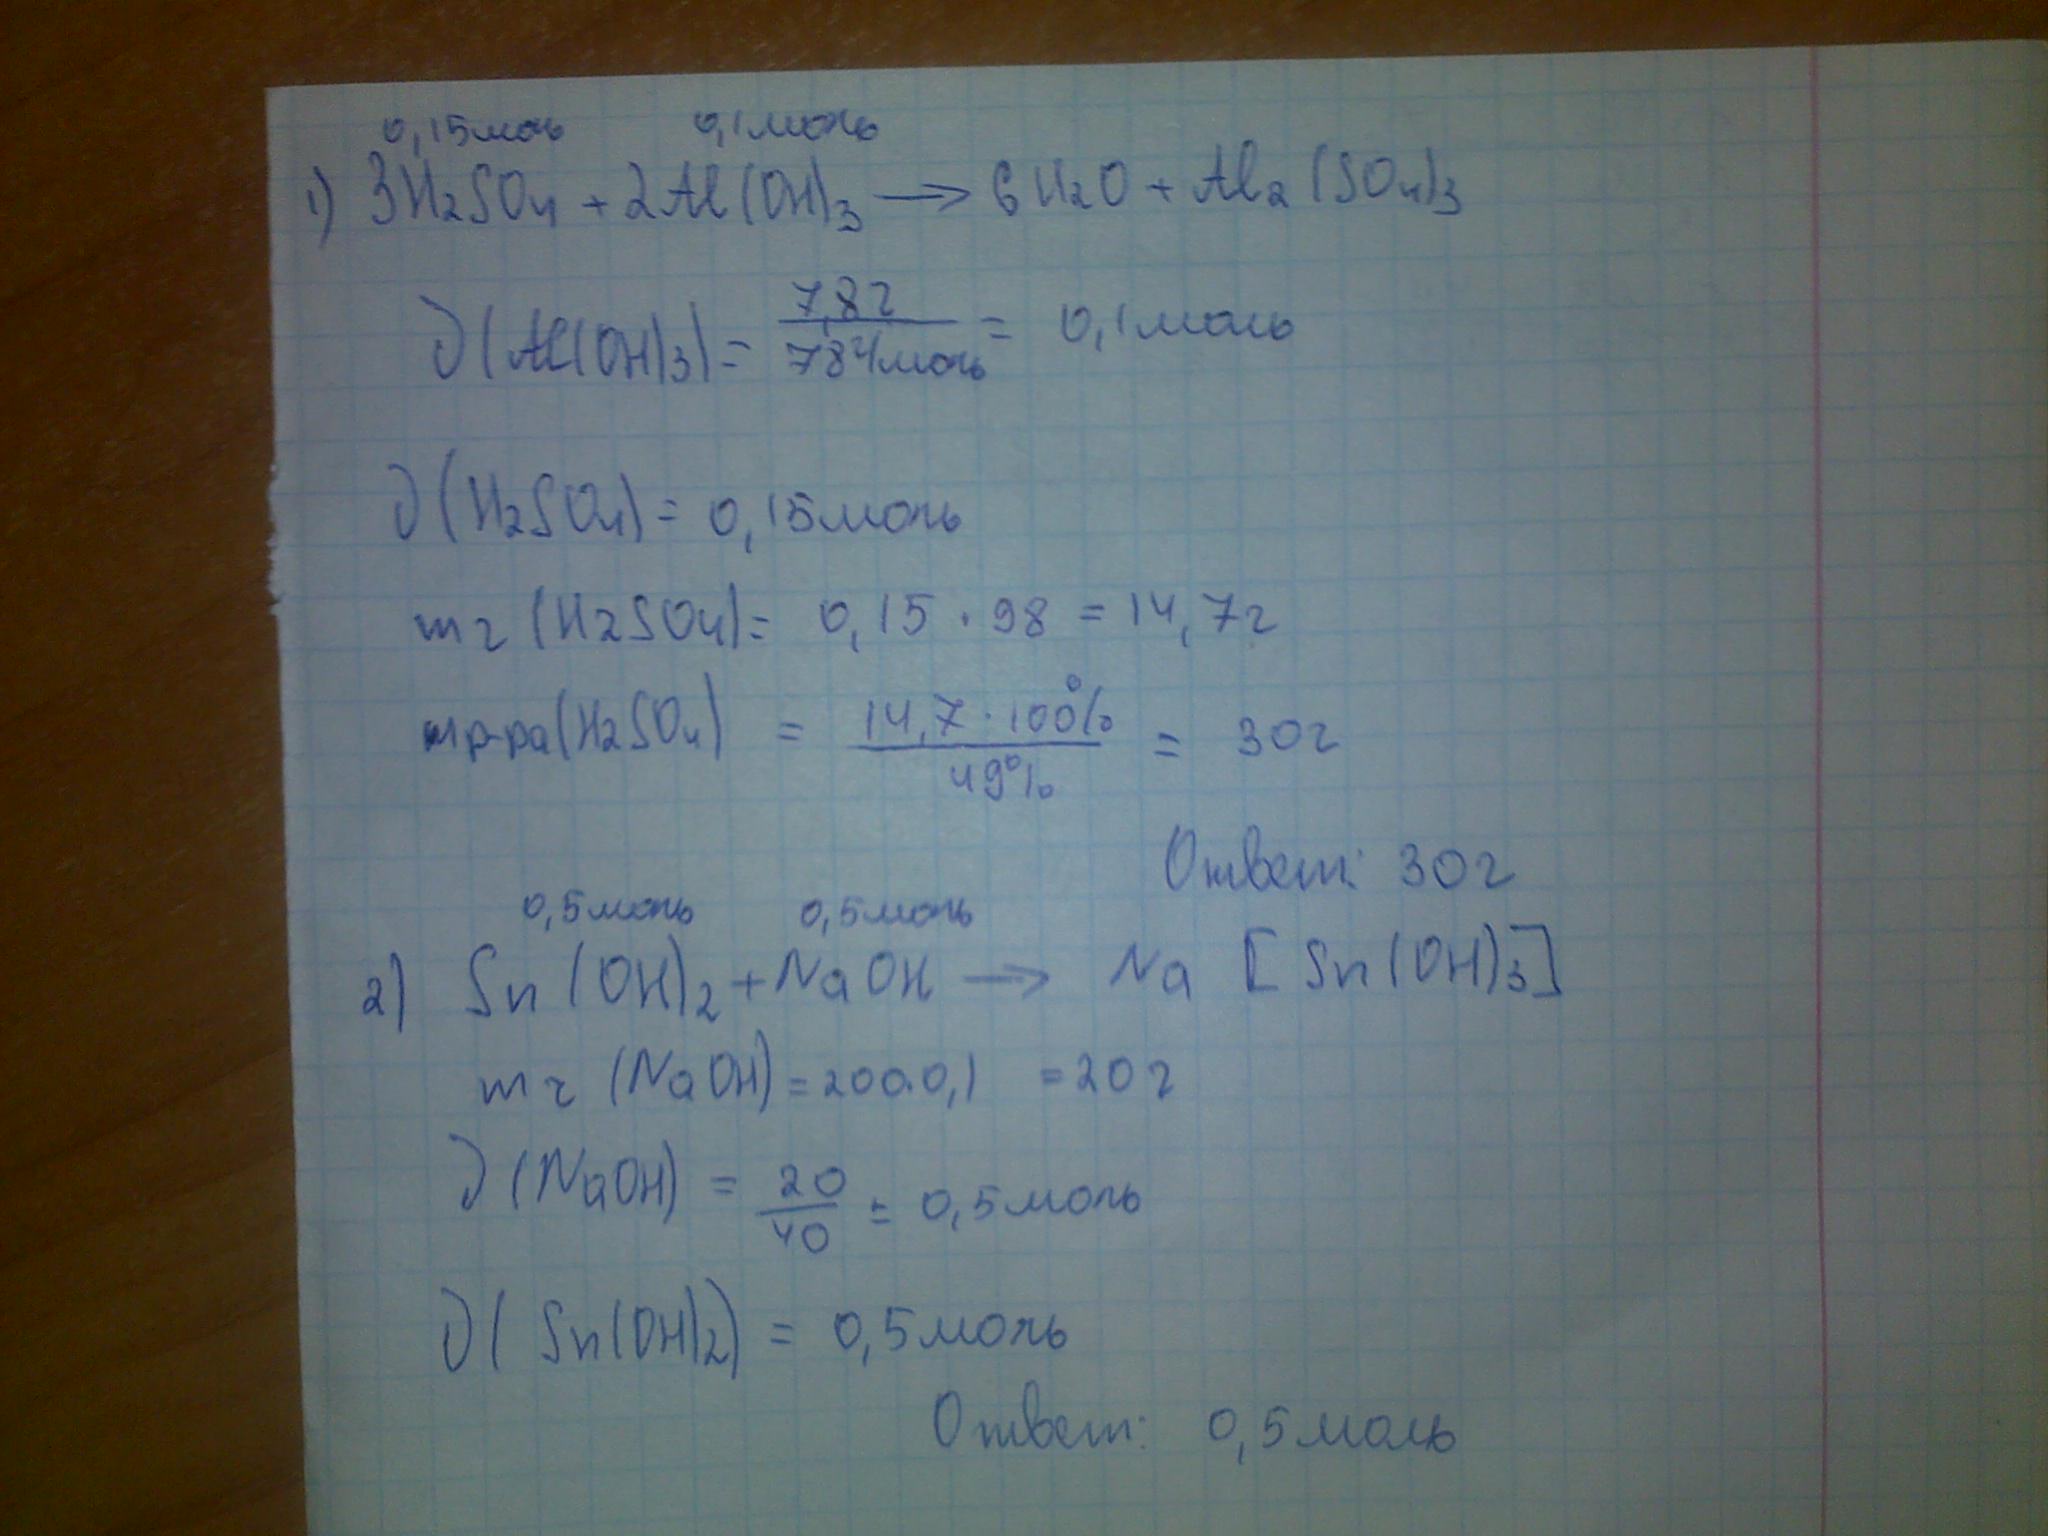 0,15моль 0,1моль
1) 3H2SO4 + 2Al(OH)3 → 6H2O + Al2(SO4)3
ν(Al(OH)3) = 7,8г / 78г/моль = 0,1моль
ν(H2SO4) = 0,15моль
mг (H2SO4) = 0,15 · 98 = 14,7г
mр-ра(H2SO4) = 14,7 · 100% / 49% = 30г
Ответ: 30г
0,5моль 0,5моль
2) Sn(OH)2 + NaOH → Na[Sn(OH)3]
mг (NaOH) = 200·0,1 = 20г
ν(NaOH) = 20 / 40 = 0,5моль
ν(Sn(OH)2) = 0,5моль
Ответ: 0,5моль